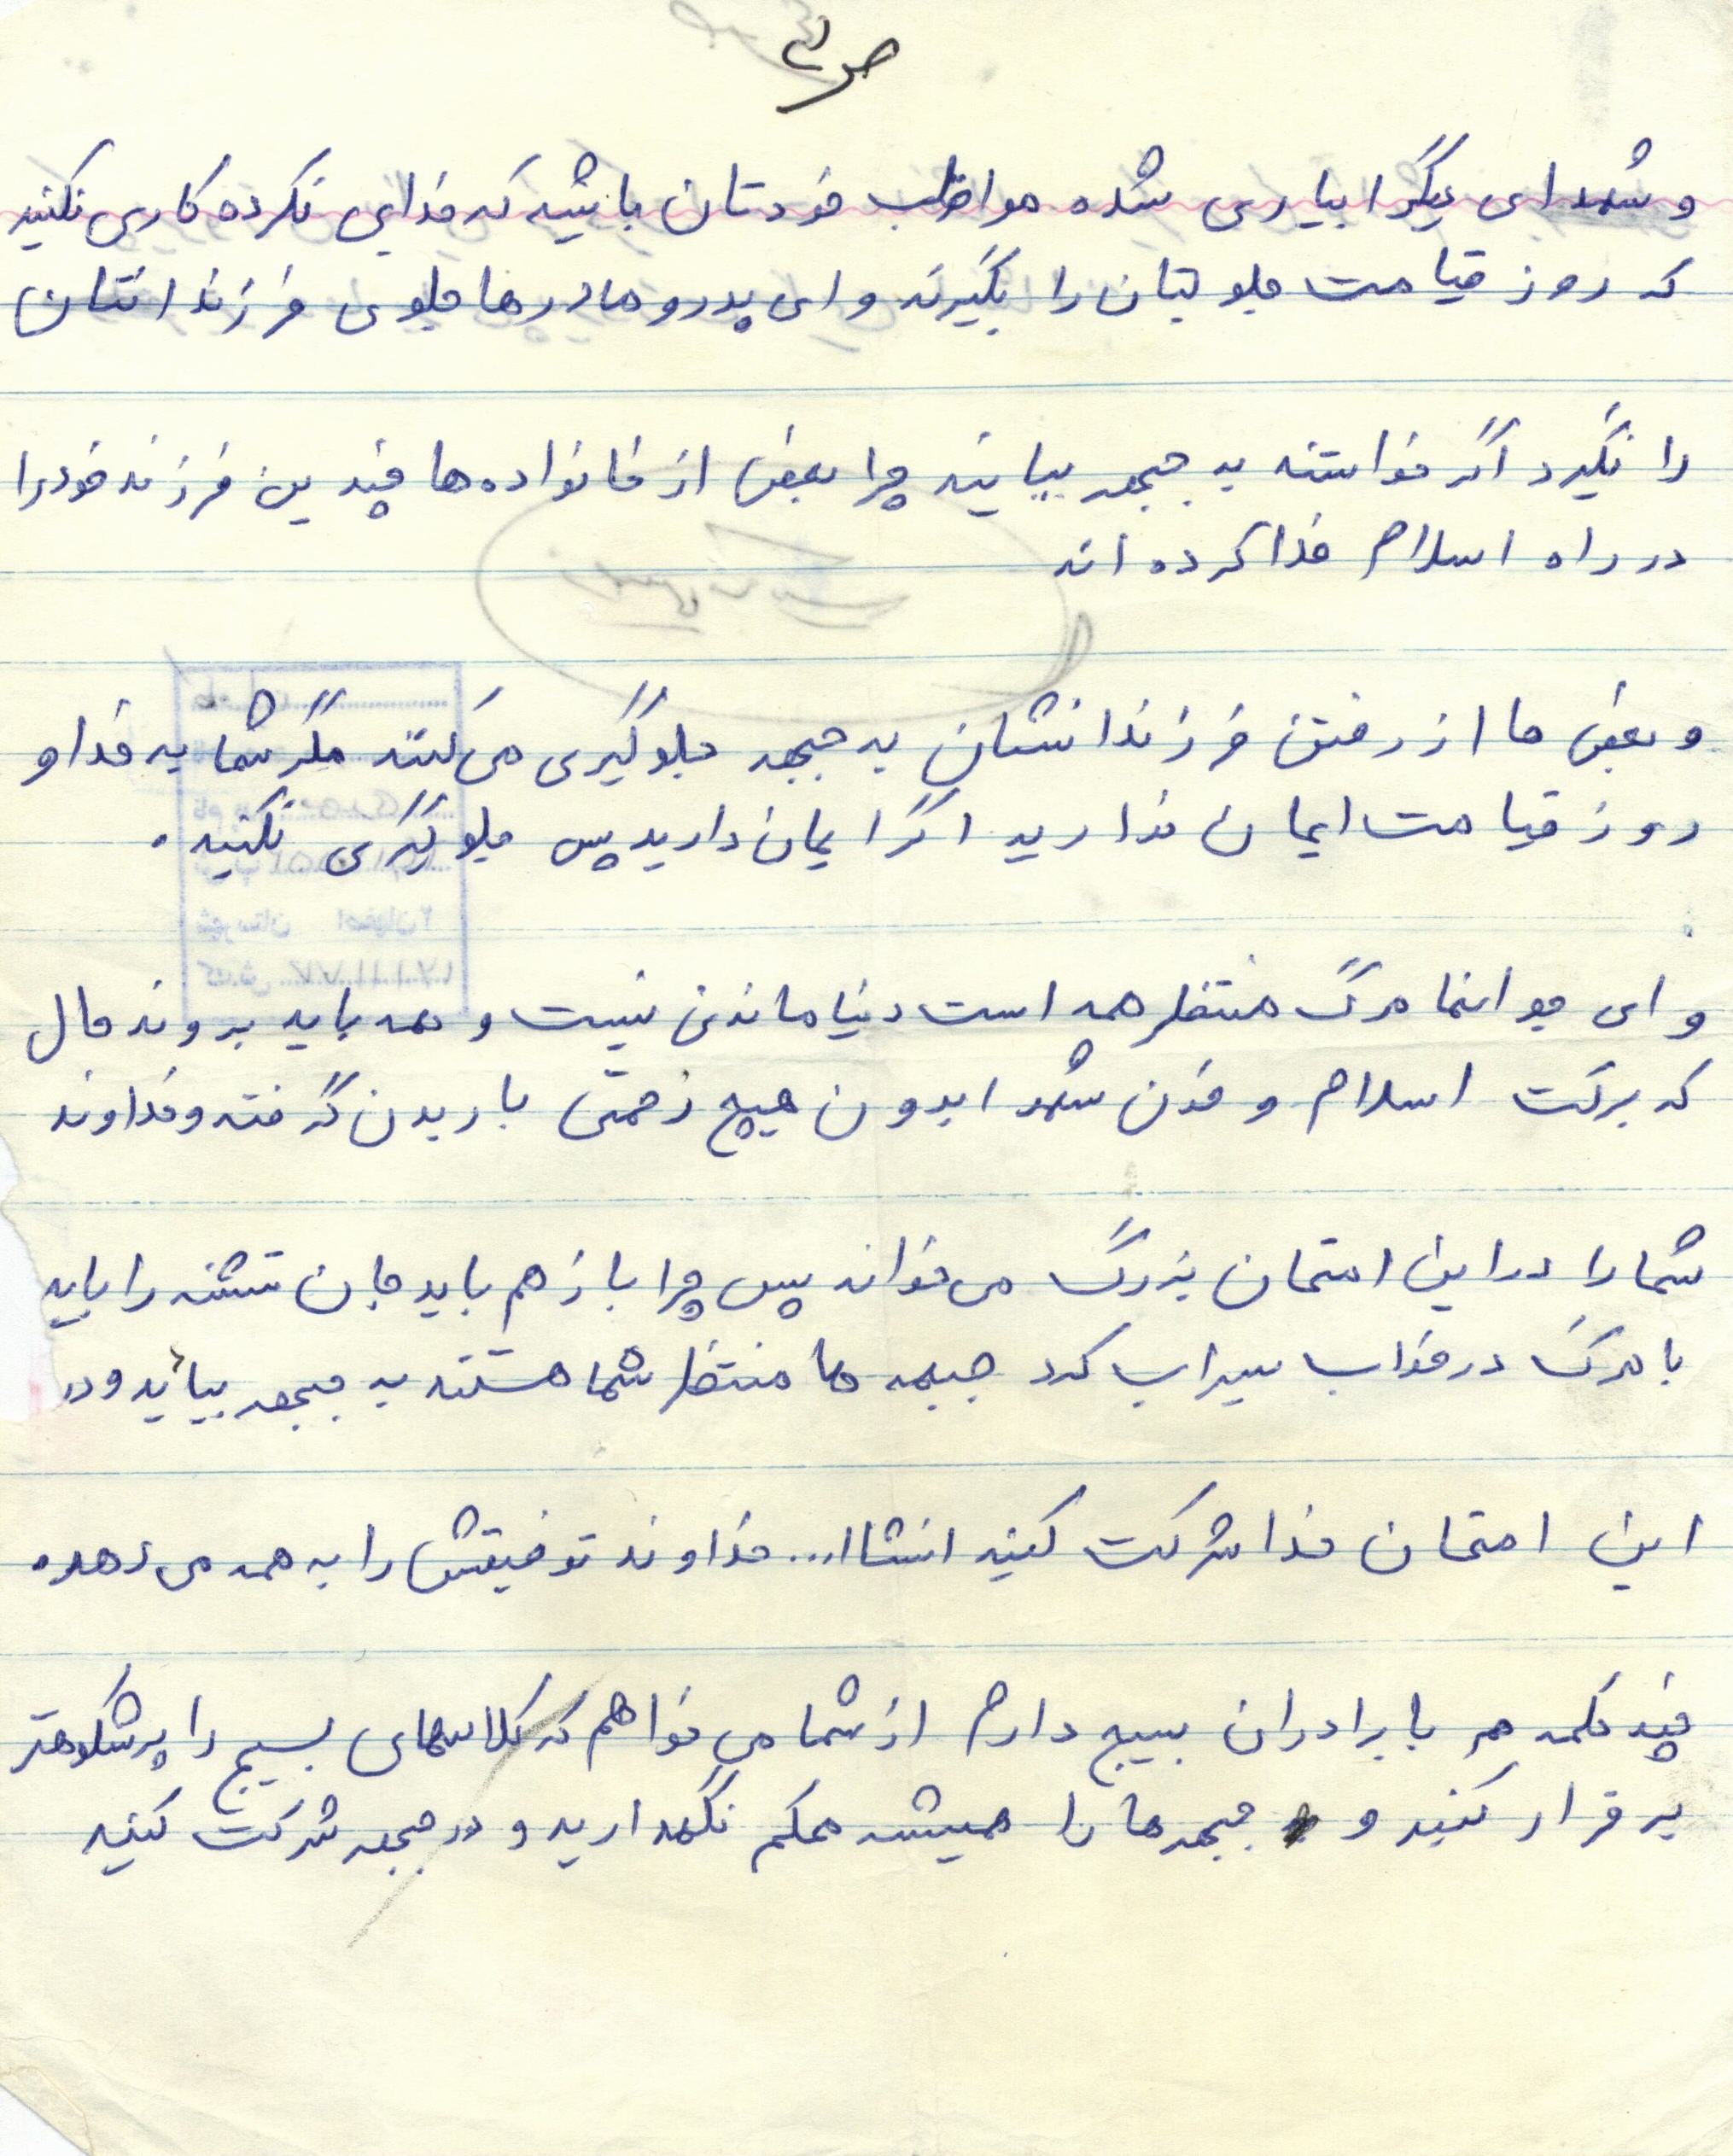 ص ۲
و شهدای دیگر ابیاری شده مواظب خودتان باشید که خدای نکرده کاری نکنید
که روز قیامت جلویتان را بگیرند و ای پدر و مادرها جلوی فرزندانتان
را نگیرد اگر خواستند به جبهه بیایند چرا بعضی از خانواده ها چندین فرزند خود را
در راه اسلام فدا کرده اند
و بعضی ها از رفتن فرزندانشان به جبهه جلوگیری می کنند مگر شما به خدا و
روز قیامت ایمان ندارید اگر ایمان دارید پس جلوگیری نکنید.
و ای جوانها مرگ منتظر همه است دنیا ماندنی نیست و همه باید بروند حال
که برکت اسلام و خون شهدا بدون هیچ زحمتی باریدن گرفته و خداوند
شما را در این امتحان بزرگ می خواند پس چرا باز هم باید جان تشنه را باید
با مرگ در خواب سیراب کرد جبهه ها منتظر شما هستند به جبهه بیائید و در
این امتحان خدا شرکت کنید انشاا... خداوند توفیقش را به همه می دهد.
چند کلمه هم با برادران بسیج دارم از شما می خواهم که کلاسهای بسیج را پرشکوهتر
برقرار کنید و جبهه ها را همیشه محکم نگهدارید و در جبهه شرکت کنید